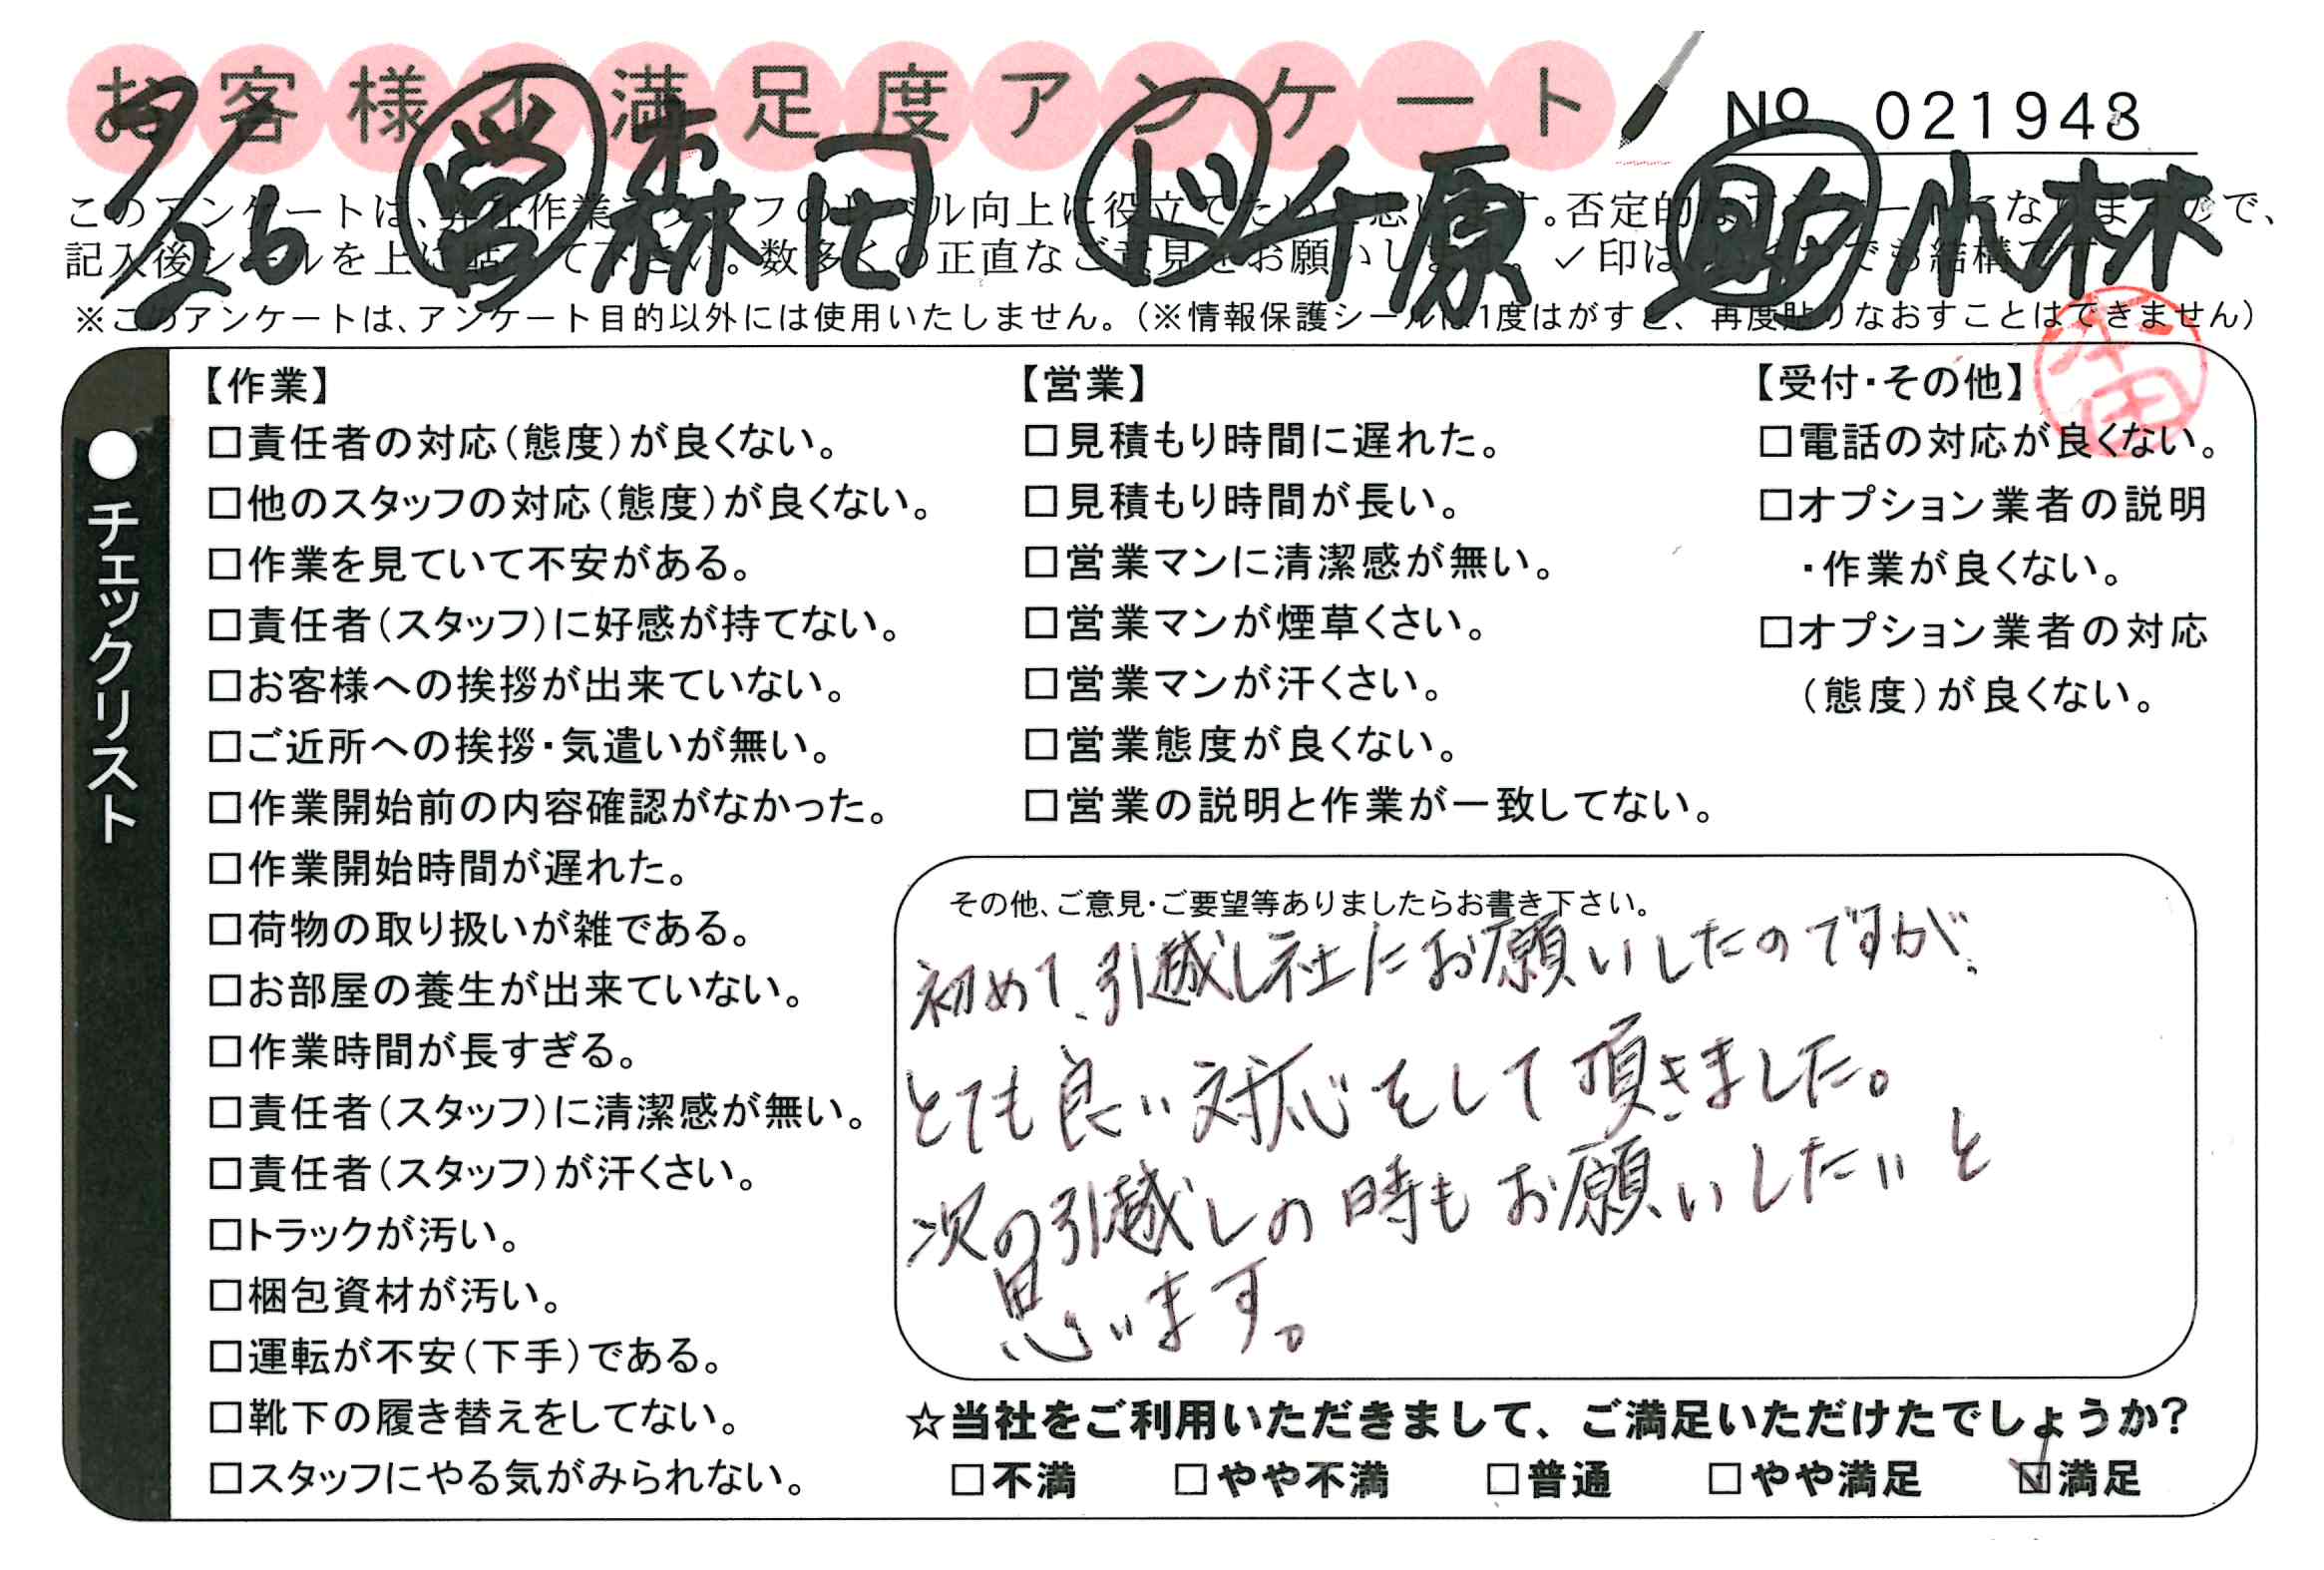 お客様不満足度アンケート
№ 021948
7/26 営 森田 ド 千原 助 小林
このアンケートは、弊社作業スタッフのレベル向上に役立てたいと思います。否定的なアンケートになりますので、
記入後シールを上に貼って下さい。数多くの正直なご意見をお願いします。✓印はいくつでも結構です。
※このアンケートは、アンケート目的以外には使用いたしません。（※情報保護シールは1度はがすと、再度貼りなおすことはできません）
●チェックリスト
【作業】
□責任者の対応（態度）が良くない。
□他のスタッフの対応（態度）が良くない。
□作業を見ていて不安がある。
□責任者（スタッフ）に好感が持てない。
□お客様への挨拶が出来ていない。
□ご近所への挨拶・気遣いが無い。
□作業開始前の内容確認がなかった。
□作業開始時間が遅れた。
□荷物の取り扱いが雑である。
□お部屋の養生が出来ていない。
□作業時間が長すぎる。
□責任者（スタッフ）に清潔感が無い。
□責任者（スタッフ）が汗くさい。
□トラックが汚い。
□梱包資材が汚い。
□運転が不安（下手）である。
□靴下の履き替えをしてない。
□スタッフにやる気がみられない。
【営業】
□見積もり時間に遅れた。
□見積もり時間が長い。
□営業マンに清潔感が無い。
□営業マンが煙草くさい。
□営業マンが汗くさい。
□営業態度が良くない。
□営業の説明と作業が一致してない。
【受付・その他】
□電話の対応が良くない。
□オプション業者の説明
・作業が良くない。
□オプション業者の対応
（態度）が良くない。
その他、ご意見・ご要望等ありましたらお書き下さい。
初めて、引越し社にお願いしたのですが、
とても良い対応をして頂きました。
次の引越しの時もお願いしたいと
思います。
☆当社をご利用いただきまして、ご満足いただけたでしょうか？
□不満 □やや不満 □普通 □やや満足 ☑満足